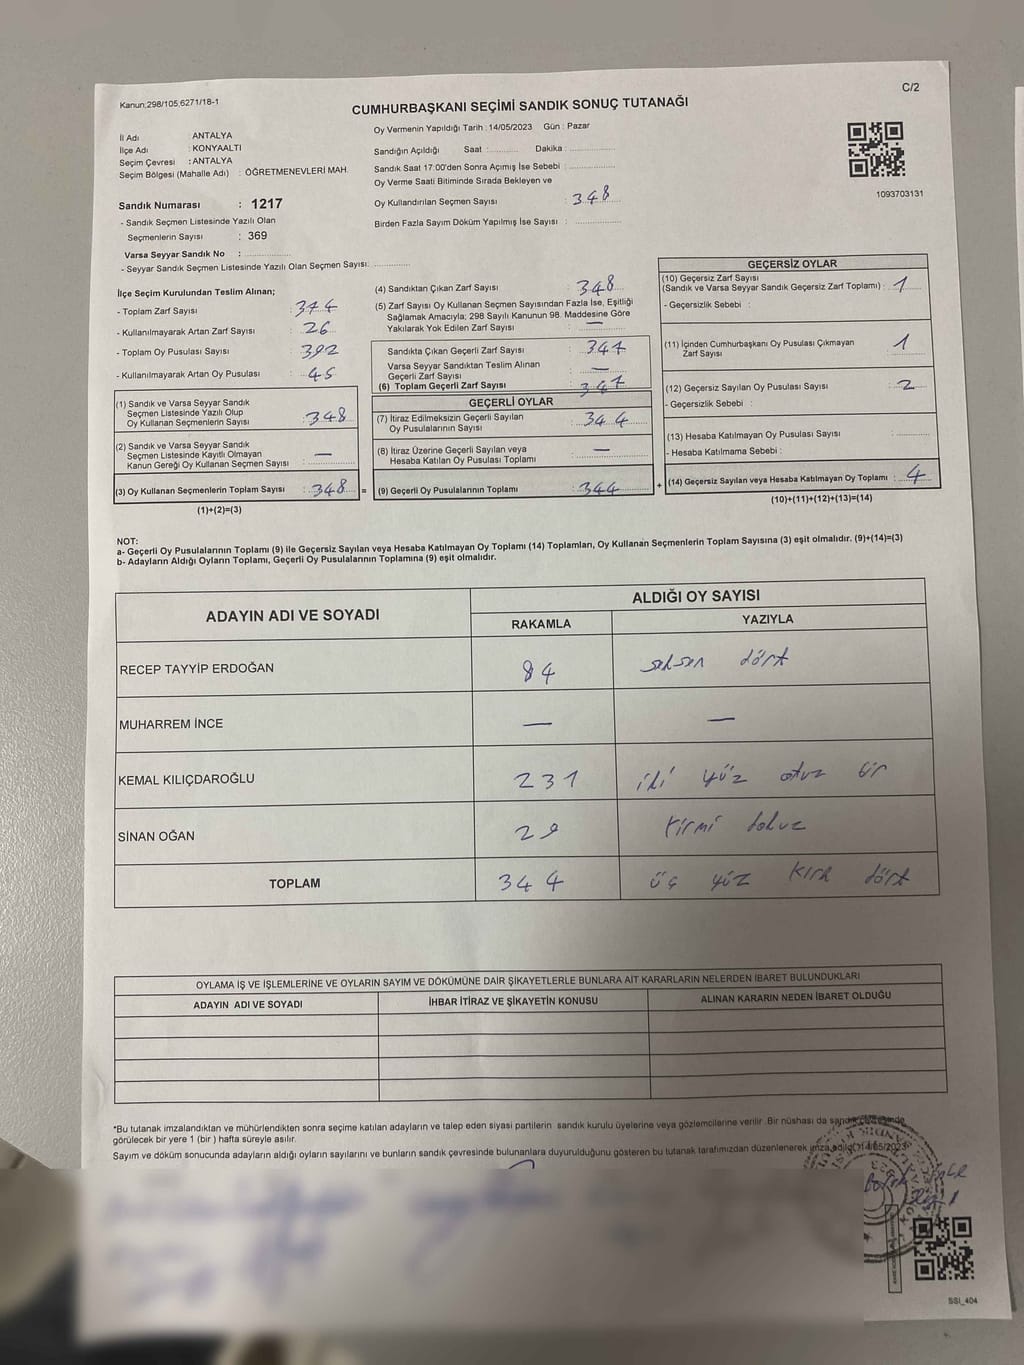 Kanun;298/105;6271/18-1
C/2
CUMHURBAŞKANI SEÇİMİ SANDIK SONUÇ TUTANAĞI
İl Adı : ANTALYA
İlçe Adı : KONYAALTI
Seçim Çevresi : ANTALYA
Seçim Bölgesi (Mahalle Adı) : ÖĞRETMENEVLERİ MAH.
Sandık Numarası : 1217
- Sandık Seçmen Listesinde Yazılı Olan
Seçmenlerin Sayısı : 369
Varsa Seyyar Sandık No :
- Seyyar Sandık Seçmen Listesinde Yazılı Olan Seçmen Sayısı:
Oy Vermenin Yapıldığı Tarih : 14/05/2023 Gün : Pazar
Sandığın Açıldığı Saat : Dakika :
Sandık Saat 17:00'den Sonra Açımış İse Sebebi :
Oy Verme Saati Bitiminde Sırada Bekleyen ve
Oy Kullandırılan Seçmen Sayısı : 348
Birden Fazla Sayım Döküm Yapılmış İse Sayısı :
1093703131
İlçe Seçim Kurulundan Teslim Alınan;
- Toplam Zarf Sayısı : 374
- Kullanılmayarak Artan Zarf Sayısı : 26
- Toplam Oy Pusulası Sayısı : 392
- Kullanılmayarak Artan Oy Pusulası : 45
(1) Sandık ve Varsa Seyyar Sandık
Seçmen Listesinde Yazılı Olup
Oy Kullanan Seçmenlerin Sayısı : 348
(2) Sandık ve Varsa Seyyar Sandık
Seçmen Listesinde Kayıtlı Olmayan
Kanun Gereği Oy Kullanan Seçmen Sayısı : —
(3) Oy Kullanan Seçmenlerin Toplam Sayısı : 348 =
(1)+(2)=(3)
(4) Sandıktan Çıkan Zarf Sayısı : 348
(5) Zarf Sayısı Oy Kullanan Seçmen Sayısından Fazla İse, Eşitliği
Sağlamak Amacıyla; 298 Sayılı Kanunun 98. Maddesine Göre
Yakılarak Yok Edilen Zarf Sayısı : —
Sandıkta Çıkan Geçerli Zarf Sayısı : 347
Varsa Seyyar Sandıktan Teslim Alınan
Geçerli Zarf Sayısı : —
(6) Toplam Geçerli Zarf Sayısı : 347
GEÇERLİ OYLAR
(7) İtiraz Edilmeksizin Geçerli Sayılan
Oy Pusulalarının Sayısı : 344
(8) İtiraz Üzerine Geçerli Sayılan veya
Hesaba Katılan Oy Pusulası Toplamı : —
(9) Geçerli Oy Pusulalarının Toplamı : 344 +
GEÇERSİZ OYLAR
(10) Geçersiz Zarf Sayısı
(Sandık ve Varsa Seyyar Sandık Geçersiz Zarf Toplamı) : 1
- Geçersizlik Sebebi :
(11) İçinden Cumhurbaşkanı Oy Pusulası Çıkmayan
Zarf Sayısı : 1
(12) Geçersiz Sayılan Oy Pusulası Sayısı : 2
- Geçersizlik Sebebi :
(13) Hesaba Katılmayan Oy Pusulası Sayısı :
- Hesaba Katılmama Sebebi :
(14) Geçersiz Sayılan veya Hesaba Katılmayan Oy Toplamı : 4
(10)+(11)+(12)+(13)=(14)
NOT:
a- Geçerli Oy Pusulalarının Toplamı (9) ile Geçersiz Sayılan veya Hesaba Katılmayan Oy Toplamı (14) Toplamları, Oy Kullanan Seçmenlerin Toplam Sayısına (3) eşit olmalıdır. (9)+(14)=(3)
b- Adayların Aldığı Oyların Toplamı, Geçerli Oy Pusulalarının Toplamına (9) eşit olmalıdır.
ADAYIN ADI VE SOYADI ALDIĞI OY SAYISI
RAKAMLA YAZIYLA
RECEP TAYYİP ERDOĞAN 84 seksen dört
MUHARREM İNCE — —
KEMAL KILIÇDAROĞLU 231 iki yüz otuz bir
SİNAN OĞAN 29 Yirmi dokuz
TOPLAM 344 üç yüz kırk dört
OYLAMA İŞ VE İŞLEMLERİNE VE OYLARIN SAYIM VE DÖKÜMÜNE DAİR ŞİKAYETLERLE BUNLARA AİT KARARLARIN NELERDEN İBARET BULUNDUKLARI
ADAYIN ADI VE SOYADI İHBAR İTİRAZ VE ŞİKAYETİN KONUSU ALINAN KARARIN NEDEN İBARET OLDUĞU
*Bu tutanak imzalandıktan ve mühürlendikten sonra seçime katılan adayların ve talep eden siyasi partilerin sandık kurulu üyelerine veya gözlemcilerine verilir. Bir nüshası da sandık
görülecek bir yere 1 (bir ) hafta süreyle asılır.
Sayım ve döküm sonucunda adayların aldığı oyların sayılarını ve bunların sandık çevresinde bulunanlara duyurulduğunu gösteren bu tutanak tarafımızdan düzenlenerek imza edildi.14/05/2023
SSI_404